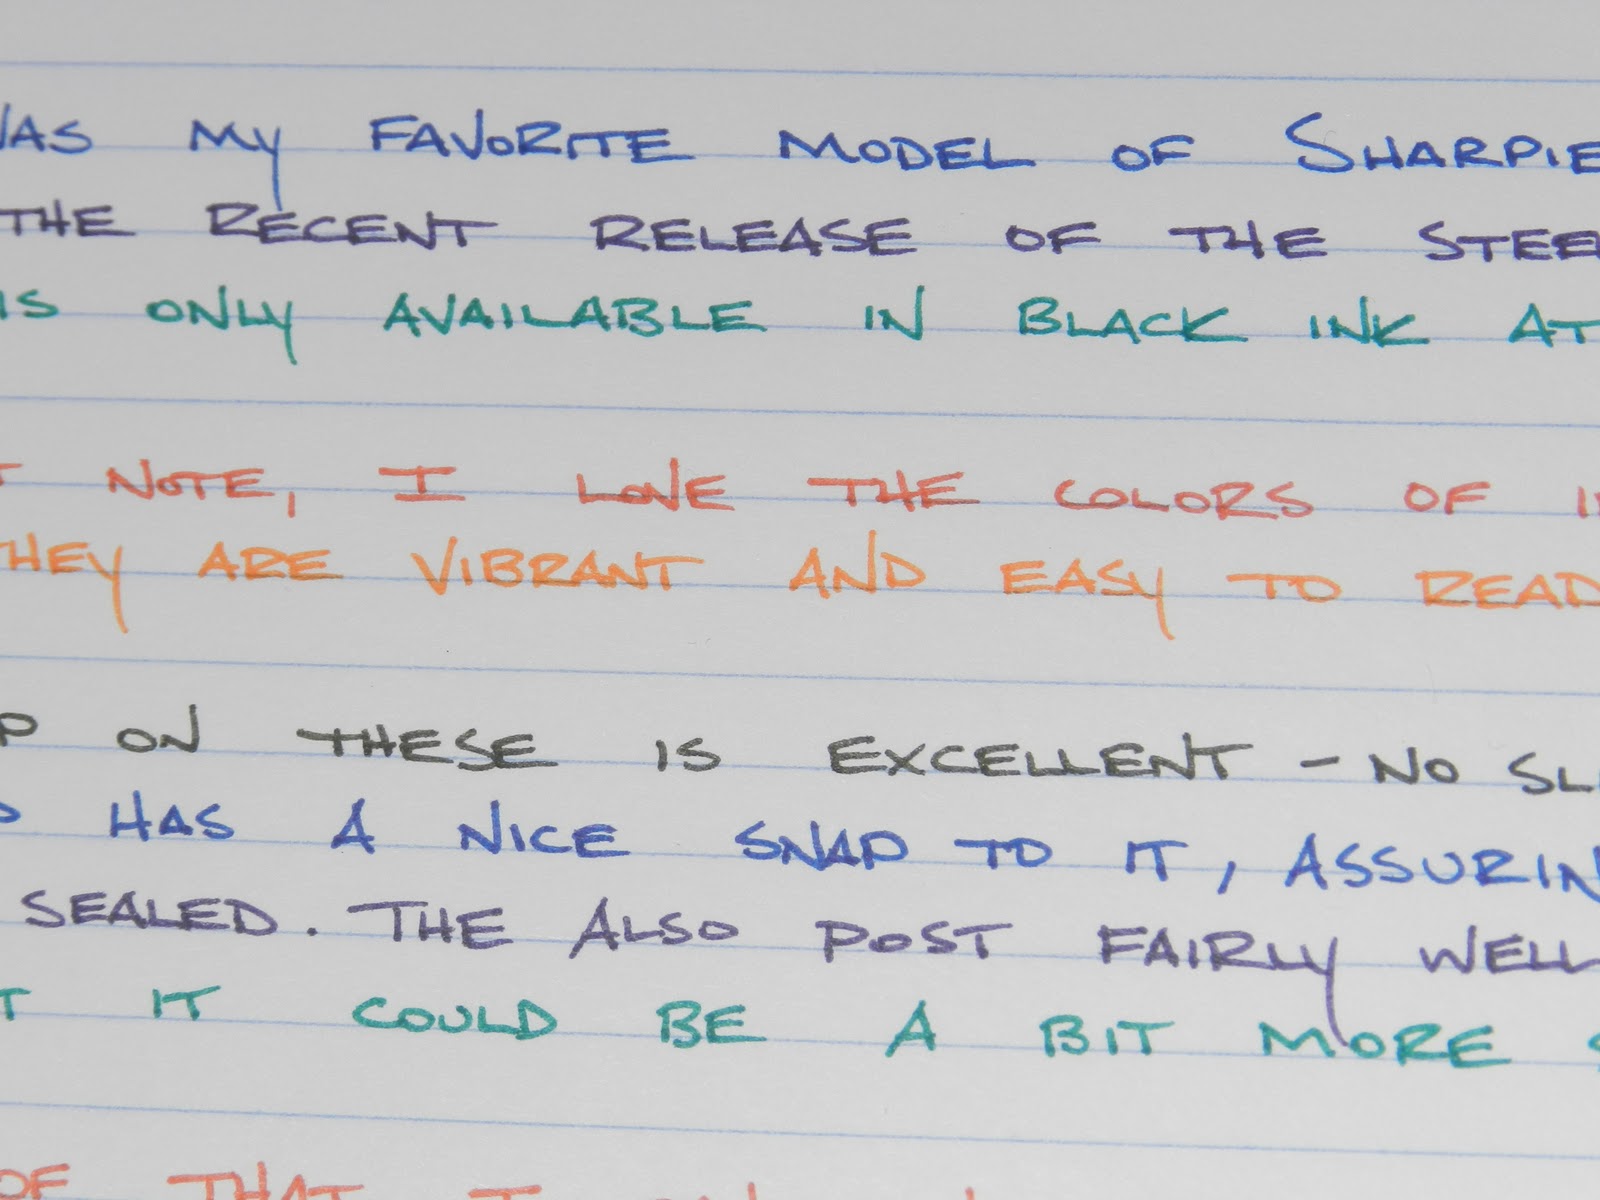 WAS MY FAVORITE MODEL OF SHARPIE
THE RECENT RELEASE OF THE STEEL
IS ONLY AVAILABLE IN BLACK INK AT
NOTE, I LOVE THE COLORS OF
THEY ARE VIBRANT AND EASY TO READ
ON THESE IS EXCELLENT - NO
HAS A NICE SNAP TO IT, ASSURIN
SEALED. THE ALSO POST FAIRLY WELL
IT COULD BE A BIT MORE
OF THAT I